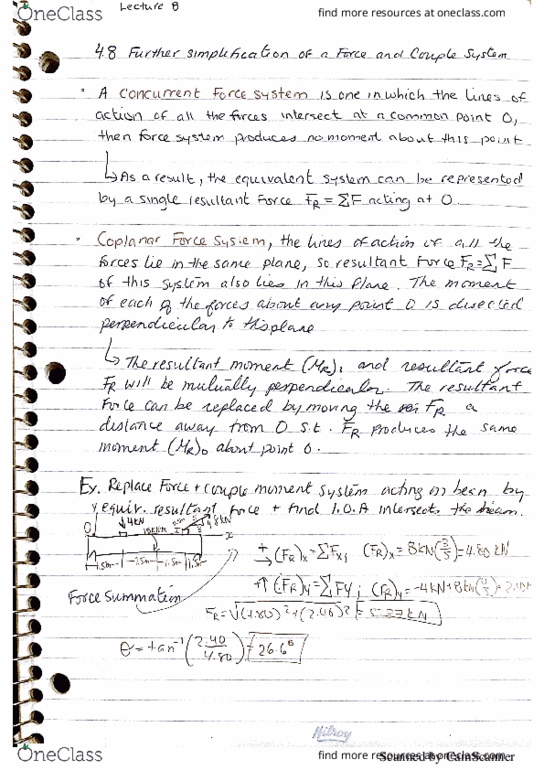 OneClass
Lecture 8
find more resources at oneclass.com
4.8 Further simplification of a Force and Couple System
· A Concurrent Force system is one in which the lines of
action of all the forces intersect at a common point O,
then force system produces no moment about this point
↳ As a result, the equivalent system can be represented
by a single resultant Force FR = ΣF acting at O
· Coplanar Force System, the lines of action of all the
forces lie in the same plane, so resultant Force FR = ΣF
of this system also lies in this Plane. The moment
of each of the forces about any point O is directed
perpendicular to this plane
↳ The resultant moment (MR)₁ and resultant force
FR will be mutually perpendicular. The resultant
Force can be replaced by moving the FR a
distance away from O s.t. FR produces the same
moment (MR)o about point O.
Ex. Replace Force + couple moment system acting on bean by
equiv. resultant force + find l.o.A intersects the beam.
y
O
4kN
8kN
x
1.5m
1.5m
1.5m
1.5m
+→ (FR)x = ΣFx; (FR)x = 8kN(3/5) = 4.80 kN
Force Summation
+↑ (FR)y = ΣFy; (FR)y = -4kN + 8kN(4/5) =
FR = √(4.80)² + (2.40)² = 5.37kN
θ = tan⁻¹(2.40/4.80) = 26.6°
Nilroy
OneClass
find more resources at oneclass.com
Scanned by CamScanner